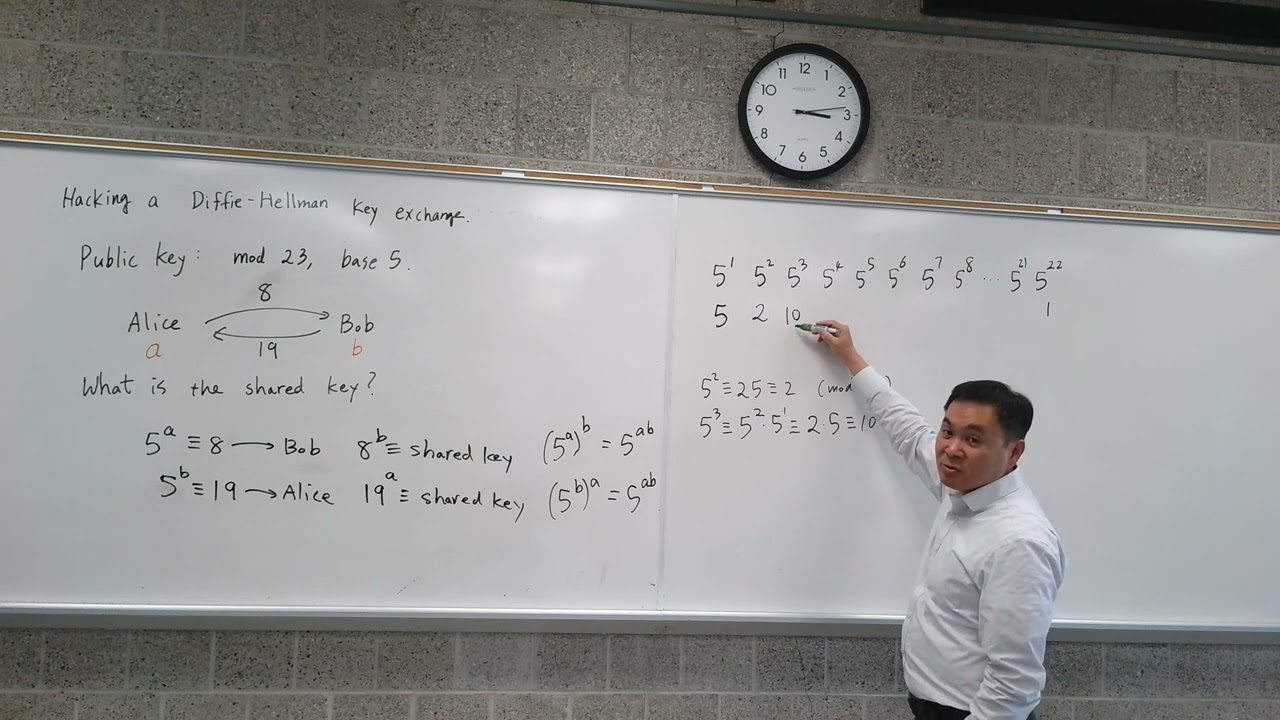 Hacking a Diffie-Hellman key exchange.
Public key: mod 23, base 5.
8
Alice Bob
a 19 b
What is the shared key?
5^a ≡ 8 → Bob 8^b ≡ shared key (5^a)^b = 5^ab
5^b ≡ 19 → Alice 19^a ≡ shared key (5^b)^a = 5^ab
12 1 2 3 4 5 6 7 8 9 10 11
5^1 5^2 5^3 5^4 5^5 5^6 5^7 5^8 ... 5^21 5^22
5 2 10 1
5^2 ≡ 25 ≡ 2 (mod )
5^3 ≡ 5^2 · 5^1 ≡ 2 · 5 ≡ 10